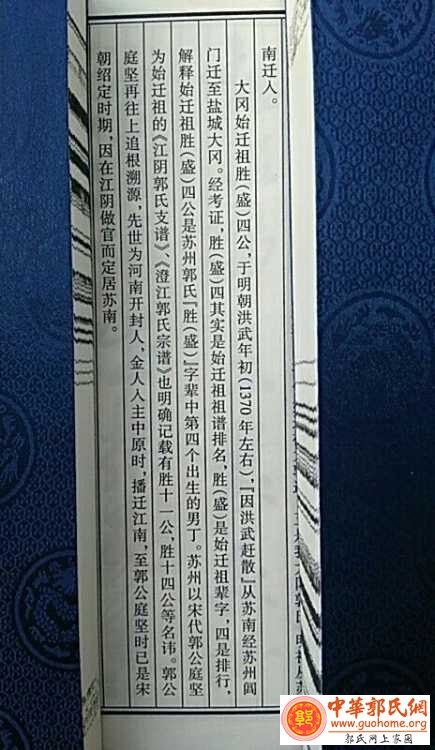 南迁人。
大冈始迁祖胜(盛)四公，于明朝洪武年初(1370年左右)，『因洪武赶散』从苏南经苏州阊
门迁至盐城大冈。经考证，胜(盛)四其实是始迁祖祖谱排名，胜(盛)是始迁祖辈字，四是排行，
解释始迁祖胜(盛)四公是苏州郭氏『胜(盛)』字辈中第四个出生的男丁。苏州以宋代郭公庭坚
为始迁祖的《江阴郭氏支谱》、《澄江郭氏宗谱》也明确记载有胜十一公，胜十四公等名讳。郭公
庭坚再往上追根溯源，先世为河南开封人，金人入主中原时，播迁江南，至郭公庭坚时已是宋
朝绍定时期，因在江阴做官而定居苏南。
中華郭氏網
www.guohome.org
郭氏网上家园